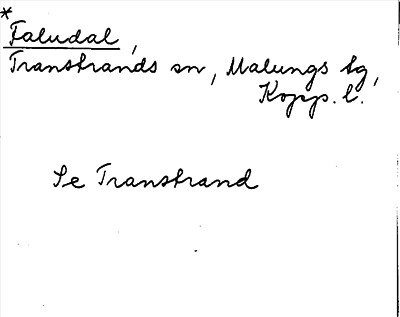 *
Faludal,
Transtrands sn, Malungs tg,
Kopp. l.
Se Transtrand